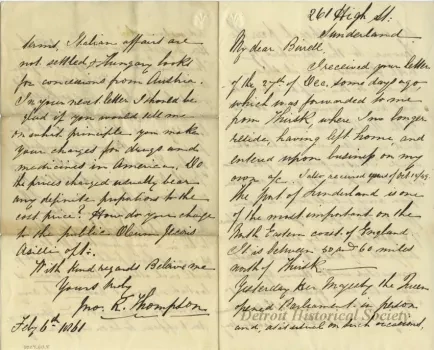 261 High St:
Sunderland
My dear Birell
I received your letter
of the 27th of Dec. some days ago
which was forwarded to me
from Thirsk where I no longer
reside, having left home, and
entered upon business on my
own
The Port of Sunderland is one
of the most important on the
North Eastern coast of England
It is between 50 and 60 miles
north of Thirsk
Yesterday Her Majesty the Queen
opened Parliament in person
and, as is usual on such occasions,
terms, Italian affairs are
not settled & Hungary looks
for concessions from Austria.
In your next letter I should be
glad if you would tell me
on what principle you make
your charges for drugs and
medicines in American. Do
the prices charged usually bear
any definite proportion to the
cost price? How do you charge
to the public Oleum Jecoris
Aselli
With kind regards Believe me
Yours truly
Jno. R. Thompson
Feby 6th 1861
Detroit Historical Society